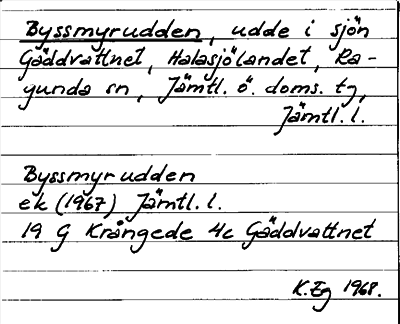 Byssmyrudden, udde i sjön
Gäddvattnet, Halasjölandet, Ra-
gunda sn, Jämtl. ö. doms. tg,
Jämtl. l.
Byssmyrudden
ek (1967) Jämtl. l.
19 G Krångede 4c Gäddvattnet
K.Eg 1968.